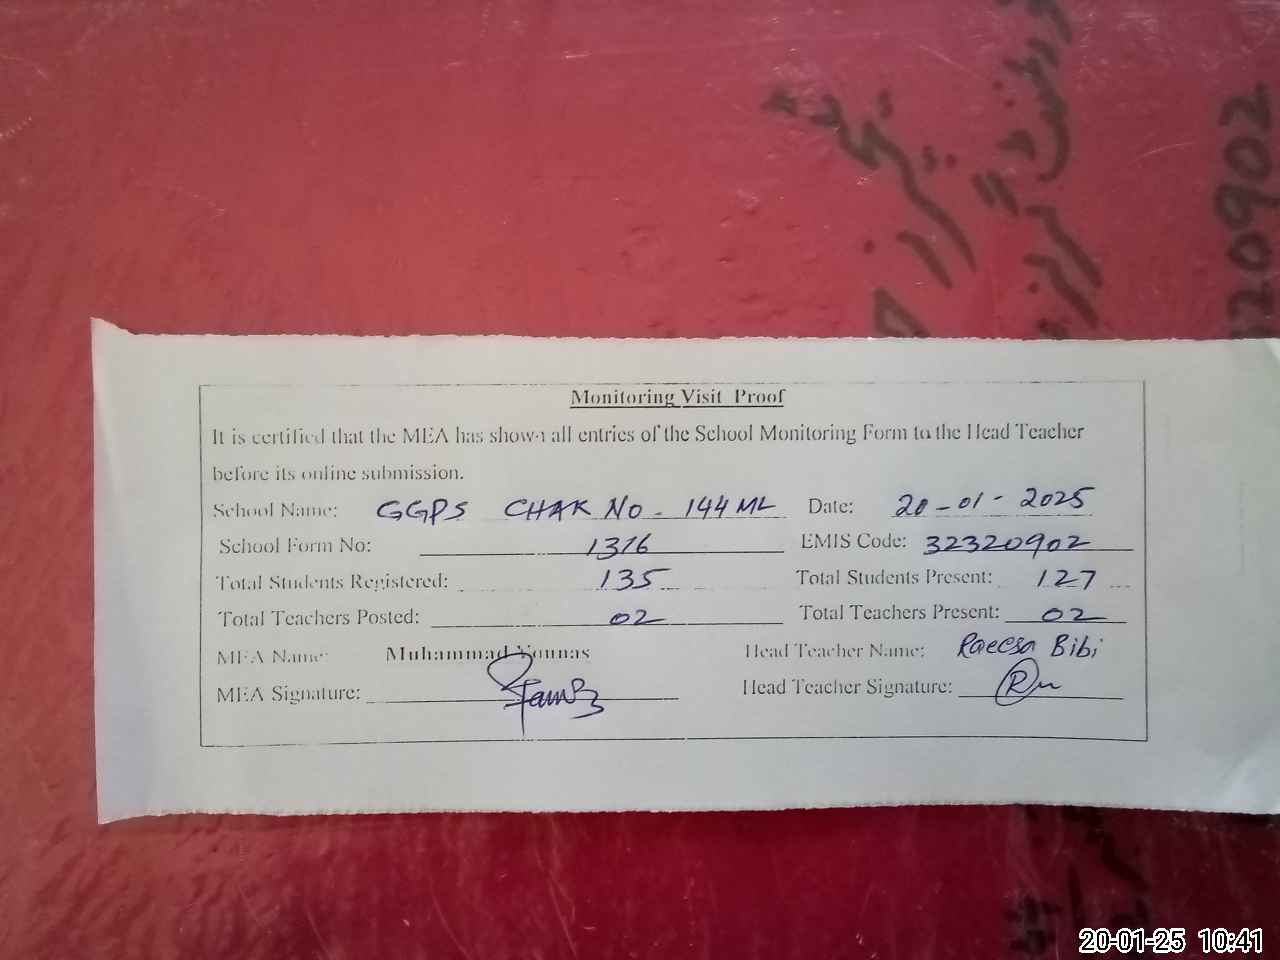 Monitoring Visit Proof
It is certified that the MEA has shown all entries of the School Monitoring Form to the Head Teacher
before its online submission.
School Name: GGPS CHAK No - 144 ML Date: 20-01-2025
School Form No: 1316 EMIS Code: 32320902
Total Students Registered: 135 Total Students Present: 127
Total Teachers Posted: 02 Total Teachers Present: 02
MEA Name: Muhammad Younas Head Teacher Name: Raeesa Bibi
MEA Signature: Head Teacher Signature:
20902
20-01-25 10:41